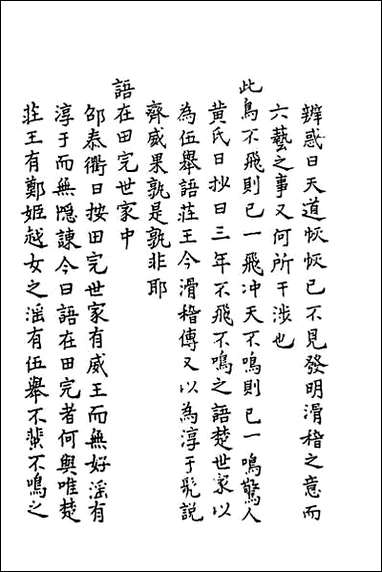 辨惑曰天道恢恢已不見發明滑稽之意而
六藝之事又何所干涉也
此鳥不飛則已一飛冲天不鳴則已一鳴驚人
黄氏日抄曰三年不飛不鳴之語楚世家以
為伍舉語莊王今滑稽傳又以為淳于髠説
齊威果孰是孰非耶
語在田完世家中
邵泰衢曰按田完世家有威王而無好淫有
淳于而無隠諫今曰語在田完者何與唯楚
莊王有鄭姬越女之淫有伍舉不蜚不鳴之